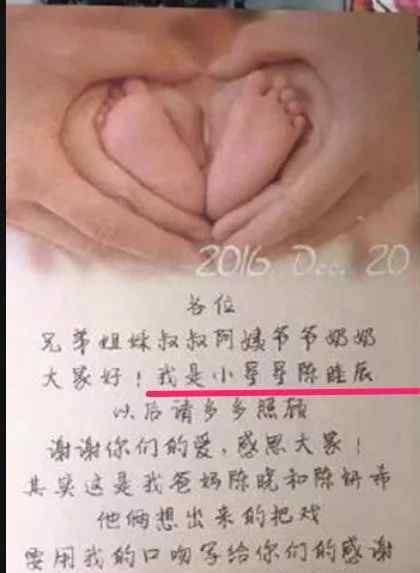 2016. Dec. 20
各位
兄弟姐妹叔叔阿姨爷爷奶奶
大家好！我是小哥哥陈睦辰
以后请多多照顾
谢谢你们的爱，感恩大家！
其实这是我爸妈陈晓和陈妍希
他俩想出来的把戏
要用我的口吻写给你们的感谢